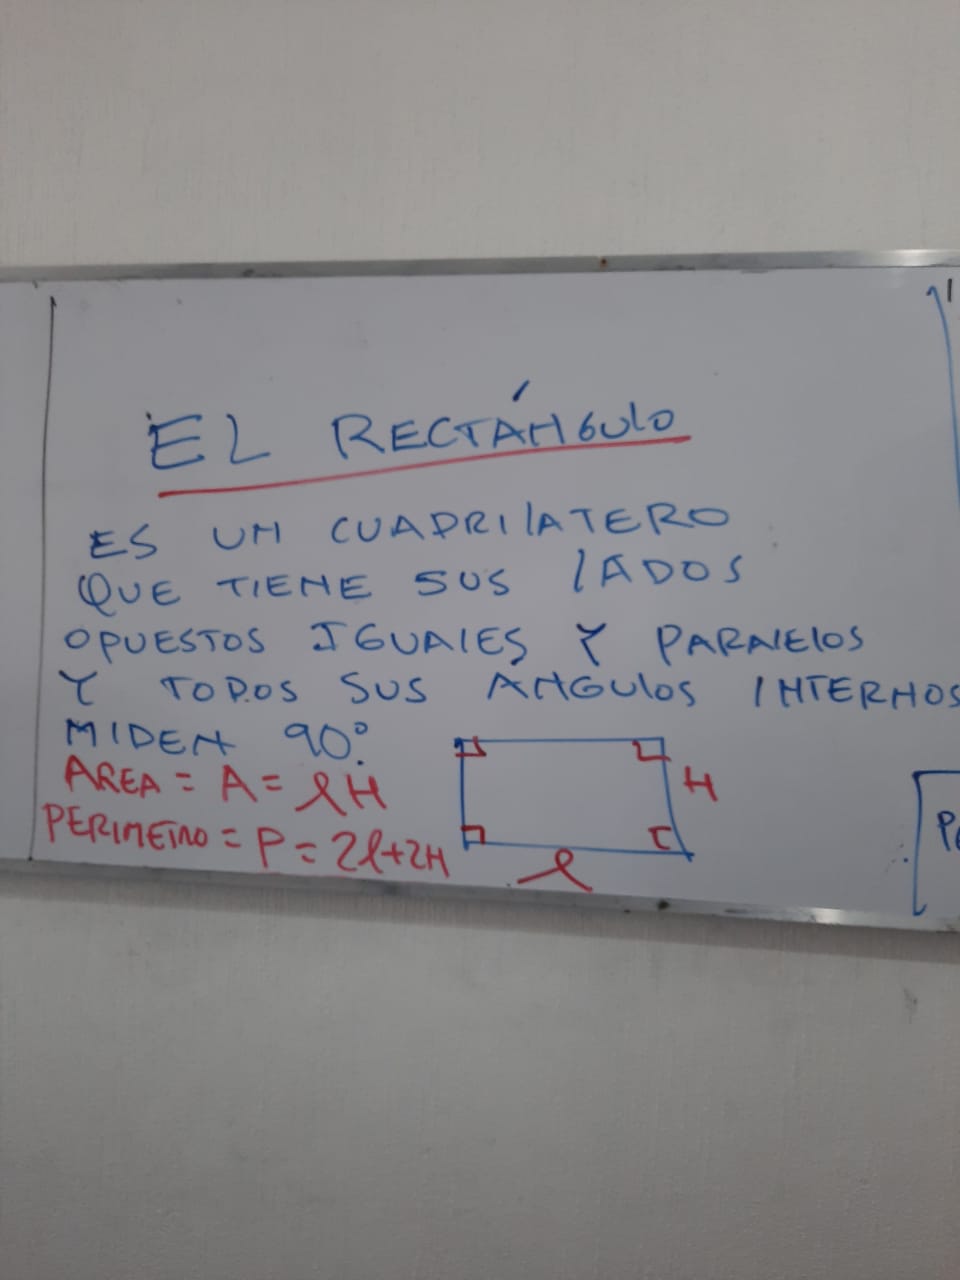 EL RECTÁNGULO
ES UN CUADRILATERO
QUE TIENE SUS LADOS
OPUESTOS IGUALES Y PARALELOS
Y TODOS SUS ÁNGULOS INTERNOS
MIDEN 90°.
AREA = A = lH
PERIMETRO = P = 2l+2H
H
l